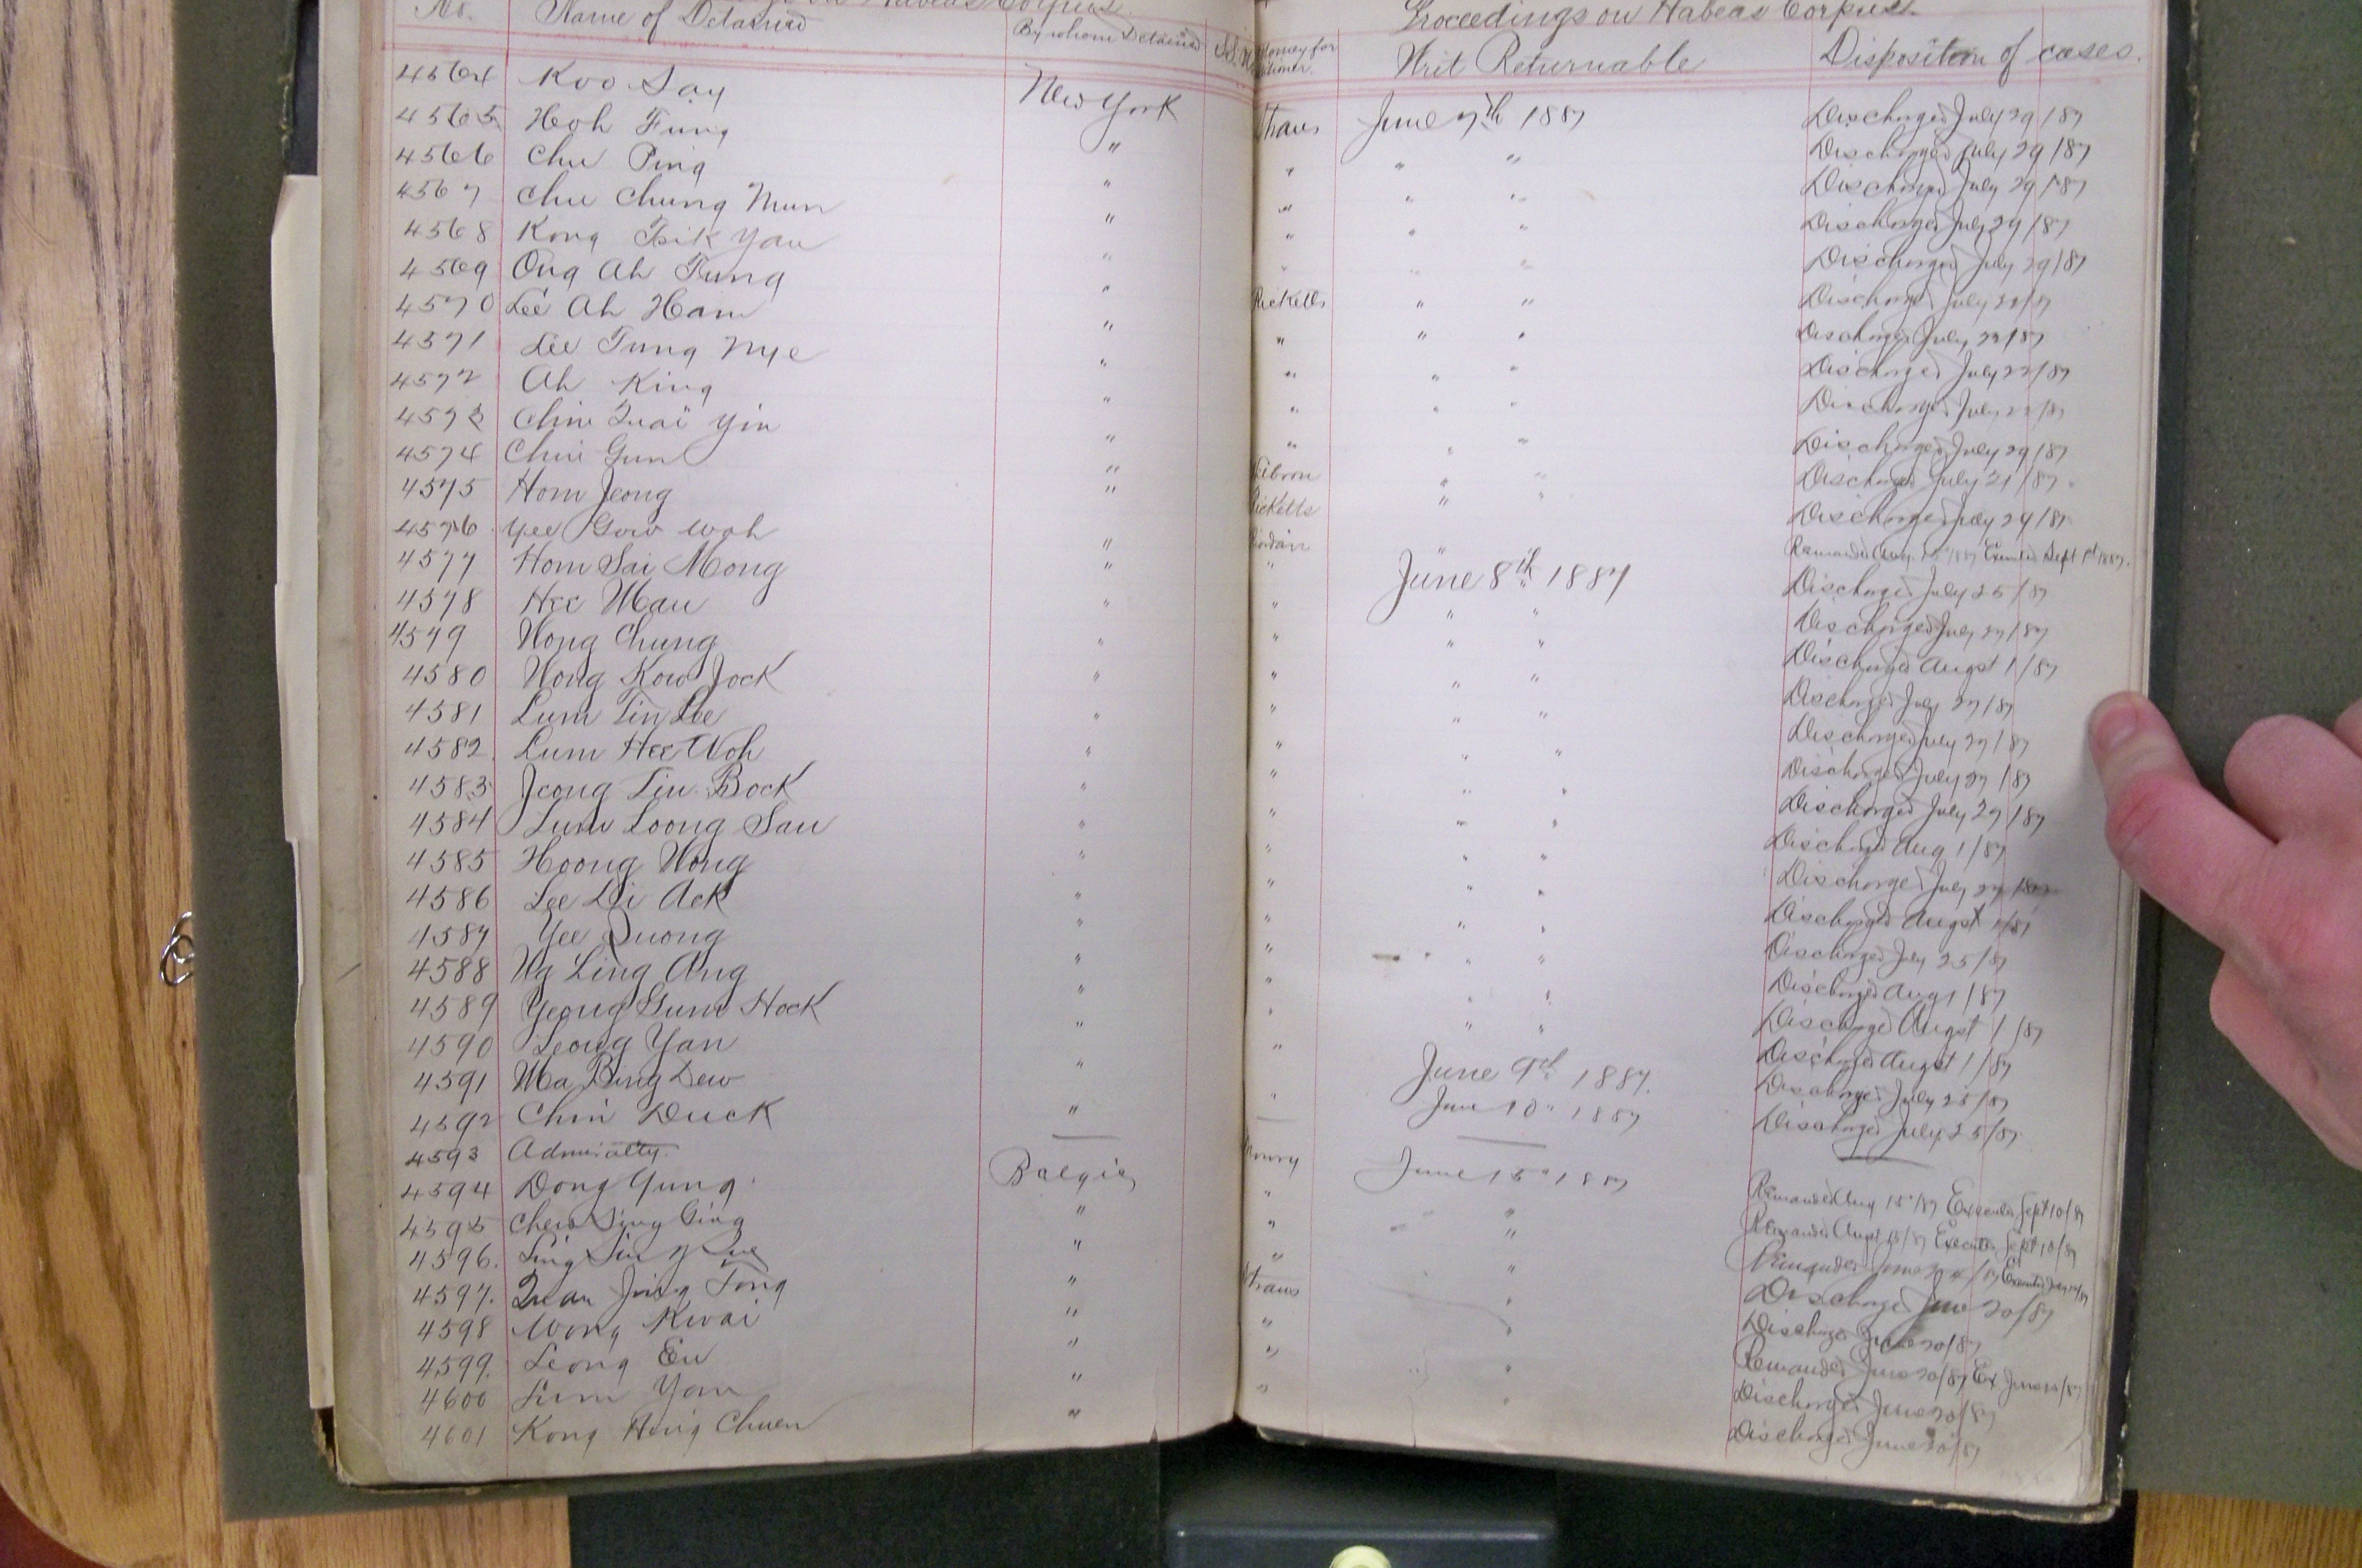 Proceedings on Habeas Corpus.
No. Name of Detained By whom Detained Writ Returnable Disposition of cases.
4564 Koo Say New York Straus June 7th 1887 Discharged July 29/87
4565 Hoh Fung " " " " Discharged July 29/87
4566 Chu Ping " " " " Discharged July 29/87
4567 Chu Chung Mun " " " " Discharged July 29/87
4568 Kong Tsik Yau " " " " Discharged July 29/87
4569 Ong Ah Tung " Ricketts " " Discharged July
4570 Lee Ah Ham " " " " Discharged July
4571 Lee Tung Nye " " " " Discharged July
4572 Ah King " " " " Discharged July
4573 Chin Quai Yin " " " " Discharged July 29/87
4574 Chin Gun " " " Discharged July 21/87
4575 Hom Jeong " Ricketts " " Discharged July 29/87
4576 Yee Gow Woh " Riordan " " Remanded Aug. Executed Sept 1st 1887.
4577 Hom Sai Mong " " June 8th 1887 Discharged July 25/87
4578 Hee Mau " " " " Discharged July 27/87
4579 Wong Chung " " " " Discharged Augst 1/87
4580 Wong Kow Jock " " " " Discharged July 27/87
4581 Lum Tin Lee " " " " Discharged July 27/87
4582 Lum Hee Woh " " " " Discharged July 27/87
4583 Jeong Tin Bock " " " " Discharged July 27/87
4584 Lum Loong Sau " " " " Discharged Aug 1/87
4585 Hoong Wong " " " " Discharged July 27/87
4586 Lee Di Ack " " " " Discharged Augst 1/87
4587 Yee Quong " " " " Discharged July 25/87
4588 Ng Ling Ang " " " " Discharged Aug 1/87
4589 Yeong Gum Hock " " " " Discharged Augst 1/87
4590 Leong Yan " " " " Discharged Augst 1/87
4591 Ma Bing Dew " " June 9th 1887. Discharged July 25/87
4592 Chin Duck " " June 10" 1887 Discharged July 25/87
4593 Admiralty.
4594 Dong Gung Belgic Mowry June 15" 1887 Remanded Aug 15"/87 Executed Sept 10/87
4595 Chew Sing Ging " " " Remanded Augst 15/87 Executed Sept 10/87
4596. Ling Sin " " " Remanded June
4597. Quan Jung Tong " " " Discharged June 20/87
4598 Wong Kwai " Straus " Discharged June 20/87
4599. Leong Eu " " " Remanded June 20/87 Ex June 20/87
4600 Lum Yow " " " Discharged June 20/87
4601 Kong Hing Chuen " " " Discharged June 20/87